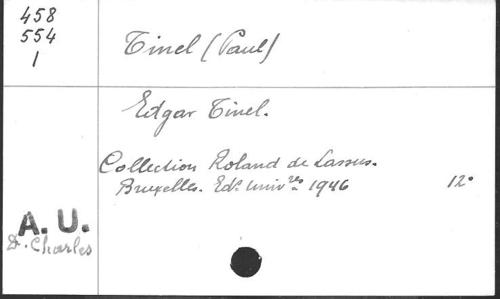 458
554
1
Tinel (Paul)
Edgar Tinel.
Collection Roland de Lassus.
Bruxelles. Eds. Univres 1946 12°
A. U.
D. Charles